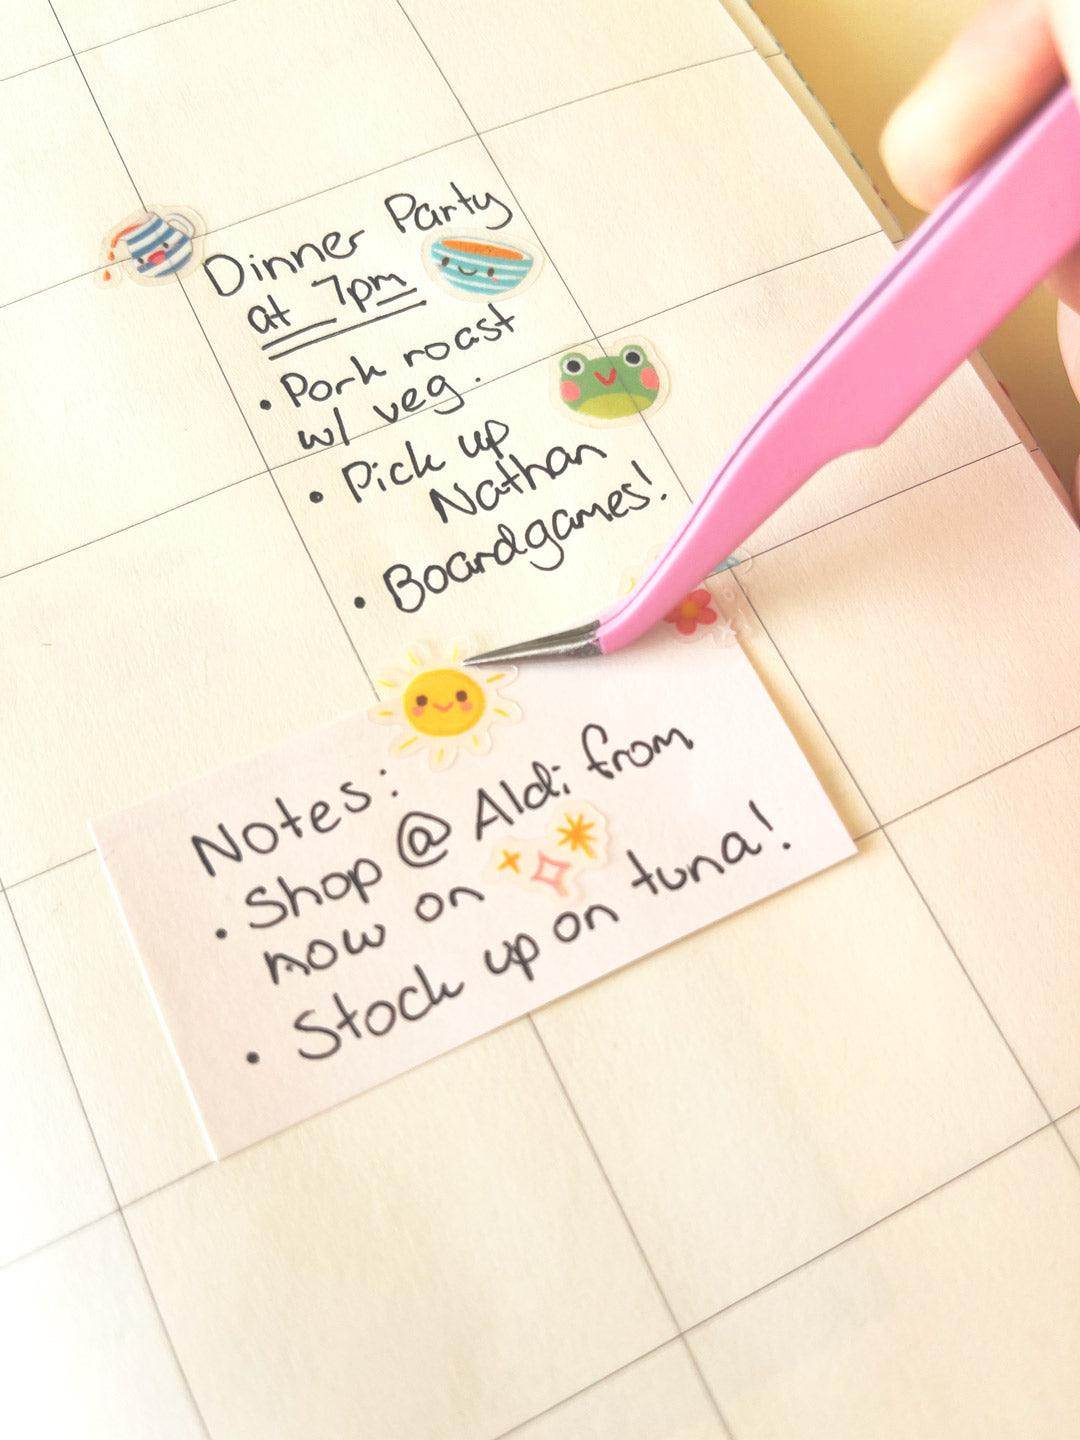 Dinner Party
at 7pm
• Pork roast
w/ veg.
• Pick up
Nathan
• Boardgames!
Notes:
• Shop @ Aldi from
now on
• Stock up on tuna!